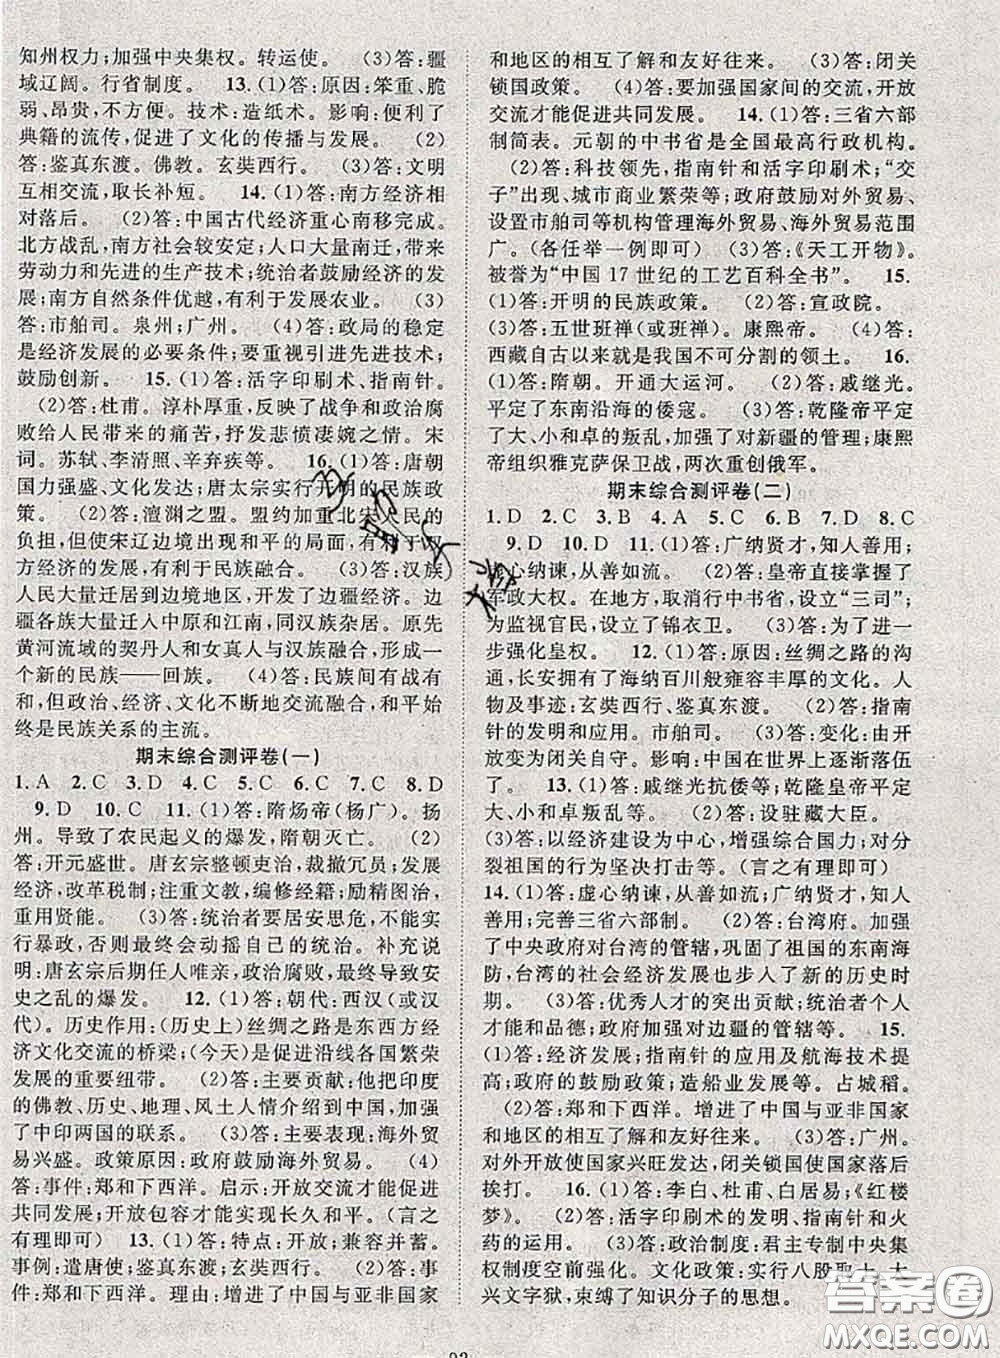 知州权力;加强中央集权。转运使。 (3)答:疆
域辽阔。行省制度。 13.(1)答:原因:笨重、脆
弱、昂贵,不方便。技术:造纸术。影响:便利了
典籍的流传,促进了文化的传播与发展。 (2)
答:鉴真东渡。佛教。玄奘西行。 (3)答:文明
互相交流,取长补短。 14.(1)答:南方经济相
对落后。 (2)答:中国古代经济重心南移完成。
北方战乱,南方社会较安定;人口大量南迁,带来
劳动力和先进的生产技术;统治者鼓励经济的发
展;南方自然条件优越,有利于发展农业。 (3)
答:市舶司。泉州;广州。 (4)答:政局的稳定
是经济发展的必要条件;要重视引进先进技术;
鼓励创新。 15.(1)答:活字印刷术、指南针。
(2)答:杜甫。淳朴厚重,反映了战争和政治腐
败给人民带来的痛苦,抒发悲愤凄婉之情。宋
词。苏轼、李清照、辛弃疾等。 16.(1)答:唐朝
国力强盛、文化发达;唐太宗实行开明的民族政
策。 (2)答:澶渊之盟。盟约加重北宋人民的
负担,但使宋辽边境出现和平的局面,有利于两
地经济的发展,有利于民族融合。 (3)答:汉族
人民大量迁移到边境地区,开发了边疆经济。边
疆各族大量迁入中原和江南,同汉族杂居。原先
黄河流域的契丹人和女真人与汉族融合,形成
一个新的民族——回族。 (4)答:民族间有战有
和,但政治、经济、文化不断地交流融合,和平始
终是民族关系的主流。
期末综合测评卷(一)
1.A 2.C 3.D 4.C 5.C 6.C 7.C 8.D
9.D 10.C 11.(1)答:隋炀帝(杨广)。扬
州。导致了农民起义的爆发,隋朝灭亡。 (2)
答:开元盛世。唐玄宗整顿吏治,裁撤冗员;发展
经济,改革税制;注重文教,编修经籍;励精图治,
重用贤能。 (3)答:统治者要居安思危,不能实
行暴政,否则最终会动摇自己的统治。补充说
明:唐玄宗后期任人唯亲,政治腐败,最终导致安
史之乱的爆发。 12.(1)答:朝代:西汉(或汉
代)。历史作用:(历史上)丝绸之路是东西方经
济文化交流的桥梁;(今天)是促进沿线各国繁荣
发展的重要纽带。 (2)答:主要贡献:他把印度
的佛教、历史、地理、风土人情介绍到中国,加强
了中印两国的联系。 (3)答:主要表现:海外贸
易兴盛。政策原因:政府鼓励海外贸易。 (4)
答:事件:郑和下西洋。启示:开放交流才能促进
共同发展;开放包容才能实现长久和平。(言之
有理即可) 13.(1)答:特点:开放;兼容并蓄。
事例:遣唐使;鉴真东渡;玄奘西行。 (2)答:事
件:郑和下西洋。理由:增进了中国与亚非国家
和地区的相互了解和友好往来。 (3)答:闭关
锁国政策。 (4)答:要加强国家间的交流,开放
交流才能促进共同发展。 14.(1)答:三省六部
制简表。元朝的中书省是全国最高行政机构。
(2)答:科技领先,指南针和活字印刷术;“交
子”出现、城市商业繁荣等;政府鼓励对外贸易、
设置市舶司等机构管理海外贸易、海外贸易范围
广。(各任举一例即可) (3)答:《天工开物》。
被誉为“中国17世纪的工艺百科全书”。 15.
(1)答:开明的民族政策。 (2)答:宣政院。
(3)答:五世班禅(或班禅)。康熙帝。 (4)答:
西藏自古以来就是我国不可分割的领土。 16.
(1)答:隋朝。开通大运河。 (2)答:戚继光。
平定了东南沿海的倭寇。 (3)答:乾隆帝平定
了大、小和卓的叛乱,加强了对新疆的管理;康熙
帝组织雅克萨保卫战,两次重创俄军。
期末综合测评卷(二)
1.D 2.C 3.C 4.D 5.C 6.B 7.D 8.C
9.D 10.D 11.(1)答:广纳贤才,知人善用;
虚心纳谏,从善如流。 (2)答:皇帝直接掌握了
军政大权。在地方,取消行中书省,设立“三司”;
为监视官民,设立了锦衣卫。 (3)答:为了进一
步强化皇权。 12.(1)答:原因:丝绸之路的沟
通,长安拥有了海纳百川般雍容丰厚的文化。人
物及事迹:玄奘西行、鉴真东渡。 (2)答:指南
针的发明与应用。市舶司。 (3)答:变化:由开
放变为闭关。影响:中国在世界上逐渐落伍
了。 13.(1)答:戚继光抗倭等;乾隆皇帝平定
大、小和卓叛乱等。 (2)答:设驻藏大臣。
(3)答:以经济建设为中心,增强综合国力;对分
裂祖国的行为坚决打击等。(言之有理即可)
14.(1)答:虚心纳谏,从善如流;广纳贤才,知人
善用;完善三省六部制。 (2)答:台湾府。加强
了中央政府对台湾的管辖,巩固了祖国的东南海
防,台湾的社会经济发展也步入了新的历史时
期。 (3)答:优秀人才的突出贡献;统治者个人
才能和品德;政府加强对边疆的管辖等。 15.
(1)答:经济发展;指南针的应用及航海技术提
高;政府的鼓励政策;造船业发展等。占城稻。
(2)答:郑和下西洋。增进了中国与亚非国家
和地区的相互了解和友好往来。 (3)答:广州。
对外开放使国家兴旺发达,闭关锁国使国家落后
挨打。 16.(1)答:李白、杜甫、白居易;《红楼
梦》。 (2)答:活字印刷术的发明、指南针和火
药的运用。 (3)答:政治制度:君主专制中央集
权制度空前强化。文化政策:实行八股取士,大
兴文字狱,束缚了知识分子的思想。
答案圈
MXQE.COM